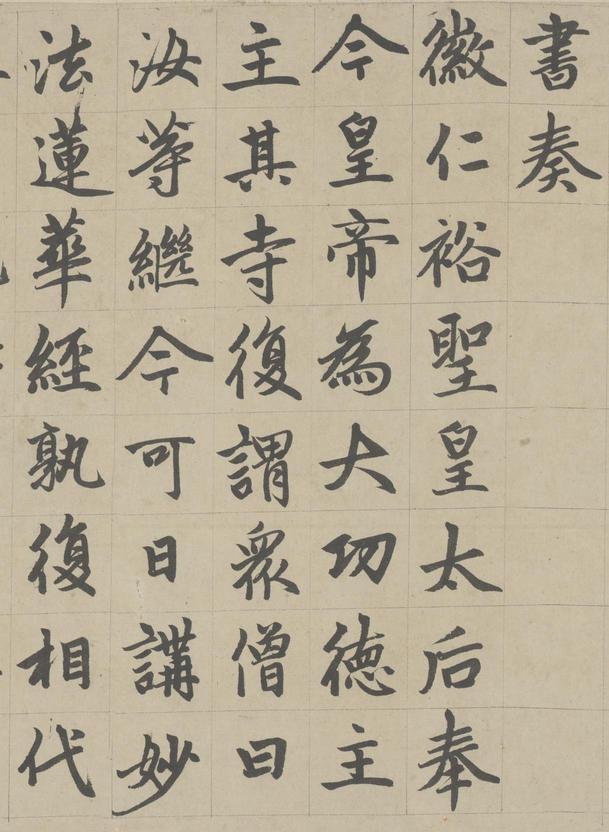 書奏
徽仁裕聖皇太后奉
今皇帝為大功德主
主其寺復謂眾僧曰
汝等繼今可日講妙
法蓮華經孰復相代